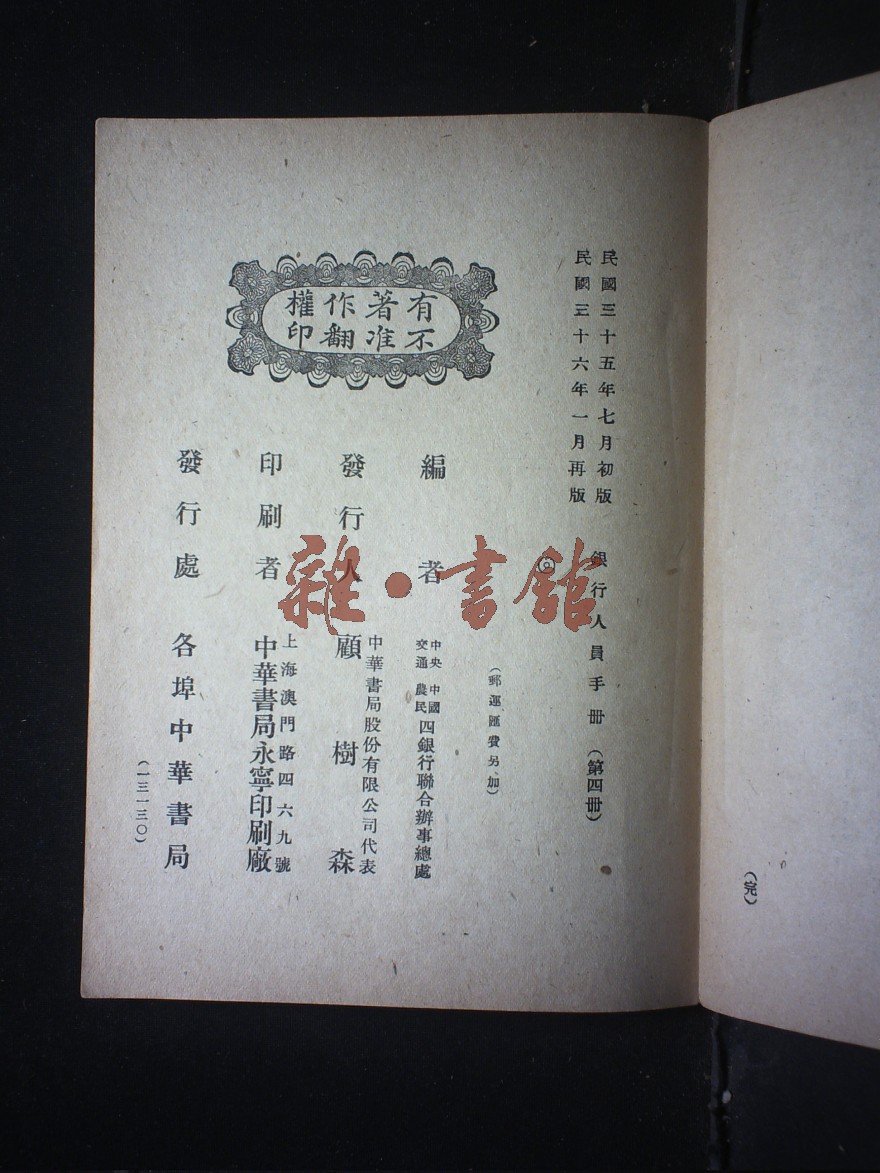 民國三十五年七月初版
民國三十六年一月再版
銀行人員手冊（第四冊）
◎
（郵運匯費另加）
編者
中央 中國
交通 農民
四銀行聯合辦事總處
發行人
中華書局股份有限公司代表
顧樹森
印刷者
上海澳門路四六九號
中華書局永寧印刷廠
發行處
各埠中華書局
（一三一三〇）
有著作權
不准翻印
（完）
雜·書館